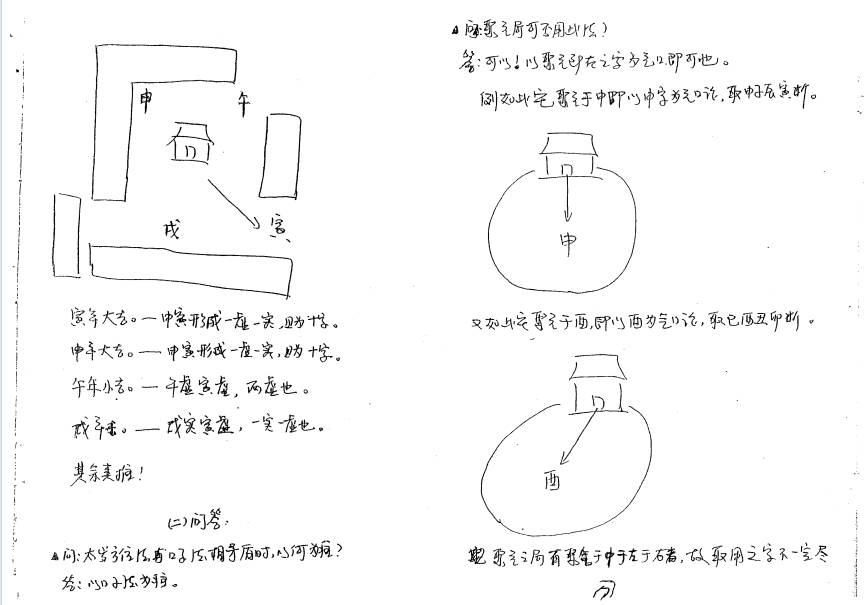 申
午
戌
寅
寅年大吉。—申寅形成一虚一实,且为十字。
申年大吉。—申寅形成一虚一实,且为十字。
午年小吉。—午虚寅虚,两虚也。
戌年吉。—戌实寅虚,一实一虚也。
其余类推!
(二)问答:
▲问:太岁方位法与口子法相矛盾时,以何为准?
答:以口子法为准。
▲问:聚气局可否用此法?
答:可以!以聚气所在之字为气口即可也。
例如此宅聚气于申即以申字为气口论,取申子辰寅断。
申
又如此宅聚气于酉,即以酉为气口论,取巳酉丑卯断。
酉
聚气之局有聚气于中于左于右者,故取用之字不一定尽
同